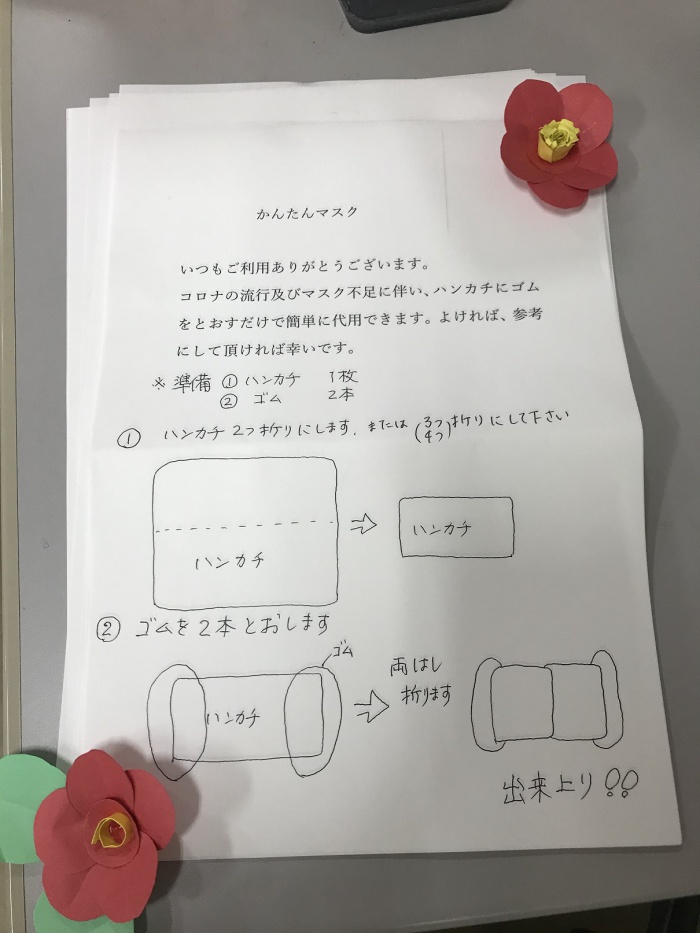 かんたんマスク
いつもご利用ありがとうございます。
コロナの流行及びマスク不足に伴い、ハンカチにゴム
をとおすだけで簡単に代用できます。よければ、参考
にして頂ければ幸いです。
※ 準備 ① ハンカチ 1枚
② ゴム 2本
① ハンカチ 2つ折りにします. または (3つ 4つ) 折りにして下さい
ハンカチ
ハンカチ
② ゴムを 2本 とおします
ゴム
ハンカチ
両はし
折ります
出来上り!!